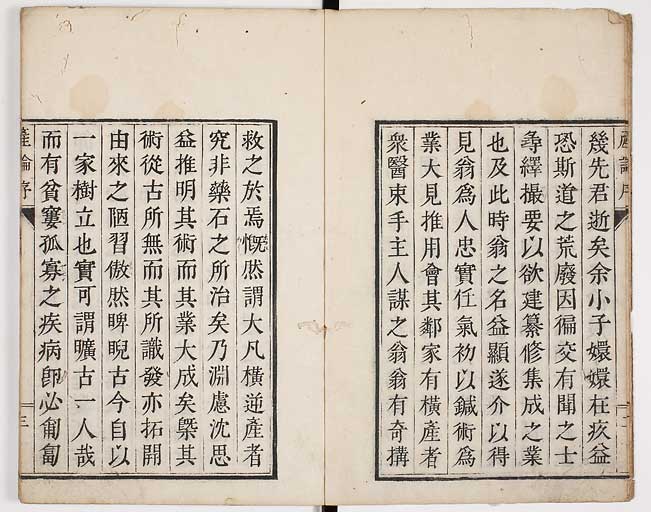 幾先君逝矣余小子嬛嬛在疚益
恐斯道之荒廢因徧交有聞之士
尋繹撮要以欲建纂修集成之業
也及此時翁之名益顯遂介以得
見翁爲人忠實任氣初以鍼術爲
業大見推用會其鄰家有橫產者
衆醫束手主人謀之翁翁有奇搆
救之於焉慨然謂大凡橫逆產者
究非藥石之所治矣乃淵慮沈思
益推明其術而其業大成矣槩其
術從古所無而其所識發亦拓開
由來之陋習傲然睥睨古今自以
一家樹立也實可謂曠古一人哉
而有貧窶孤寡之疾病卽必匍匐
產論序
三